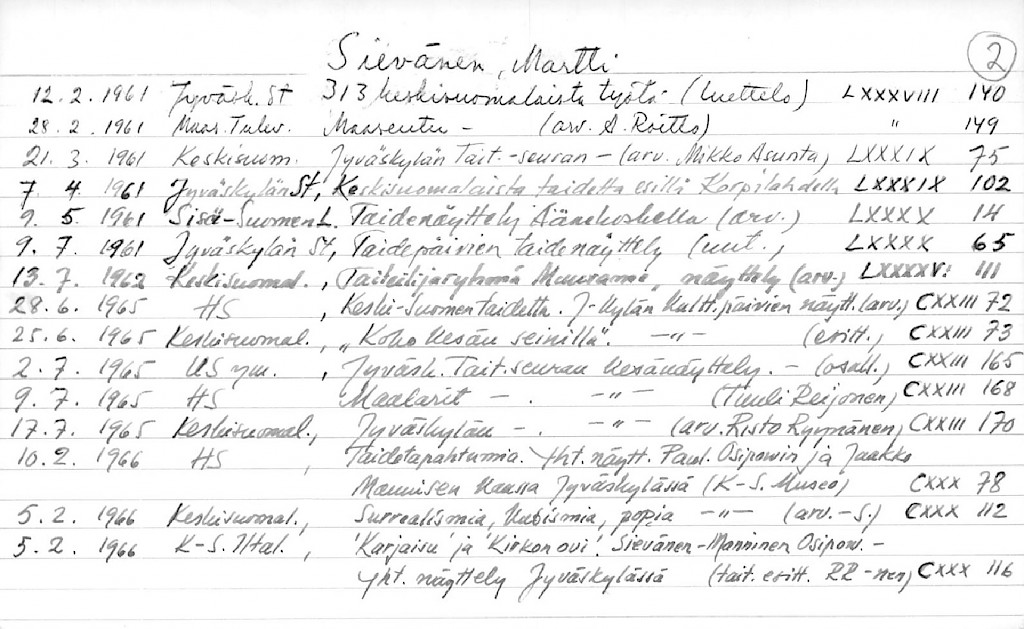 Sievänen, Martti 2
12.2.1961 Jyväsk. St 313 keskisuomalaista työtä (luettelo) LXXXVIII 140
28.2.1961 Maas. Tulev. Maaseutu - (arv. A. Roitto) " 149
21.3.1961 Keskisuom. Jyväskylän Tait.-seuran - (arv. Mikko Asunta) LXXXIX 75
7.4.1961 Jyväskylän St, Keskisuomalaista taidetta esillä Korpilahdella LXXXIX 102
9.5.1961 Sisä-Suomen L. Taidenäyttely Äänekoskella (arv.) LXXXX 14
9.7.1961 Jyväskylän St, Taidepäivien taidenäyttely (uut., LXXXX 65
13.7.1962 Keskisuomal., Taiteilijaryhmä Muurame, näyttely (arv.) LXXXXVI 111
28.6.1965 HS, Keski-Suomen taidetta. J-kylän kultt.päivien näytt. (arv.) CXXIII 72
25.6.1965 Keskisuomal., "Koko kesän seinillä". -"- (esitt., CXXIII 73
2.7.1965 US ym., Jyväsk. Tait.seuran kesänäyttely. - (osall.) CXXIII 165
9.7.1965 HS Maalarit - . -"- (Tuuli Reijonen) CXXIII 168
17.7.1965 Keskisuomal., Jyväskylän - . -"- (arv. Risto Ryymänen) CXXIII 170
10.2.1966 HS, Taidetapahtumia. Yht. näytt. Paul. Osipowin ja Jaakko
Mannisen kanssa Jyväskylässä (K-S. Museo) CXXX 78
5.2.1966 Keskisuomal., Surrealismia, kubismia, popia -"- (arv.-S.) CXXX 112
5.2.1966 K-S. Iltal., 'Karjaisu' ja 'Kirkon ovi'. Sievänen-Manninen Osipow. -
yht. näyttely Jyväskylässä (tait. esitt. RR-nen) CXXX 116